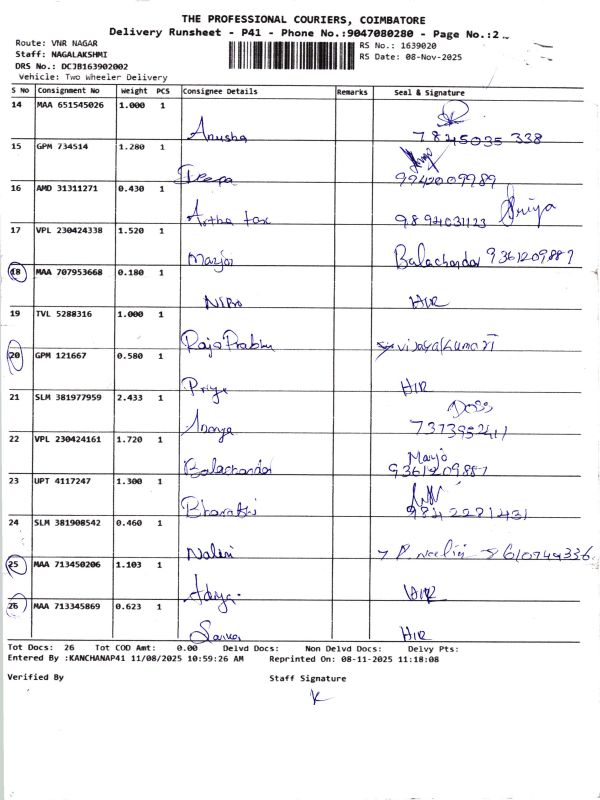 THE PROFESSIONAL COURIERS, COIMBATORE
Delivery Runsheet - P41 - Phone No.:9047080280 - Page No.:2
Route: VNR NAGAR
Staff: NAGALAKSHMI
DRS No.: DCJB163902002
Vehicle: Two Wheeler Delivery
RS No.: 1639020
RS Date: 08-Nov-2025
S No Consignment No Weight PCS Consignee Details Remarks Seal & Signature
14 MAA 651545026 1.000 1
Anusha 7845035338
15 GPM 734514 1.280 1
Deepa 9942009989
16 AMD 31311271 0.430 1
Artha tax 9894031123 Priya
17 VPL 230424338 1.520 1
Balachandar 9361209887
18 MAA 707953668 0.180 1
HIR
19 TVL 5288316 1.000 1
Raja Prabhu vijayalkumari
20 GPM 121667 0.580 1
Priya HIR
21 SLM 381977959 2.433 1
Doss
Ananya 7373952411
22 VPL 230424161 1.720 1
Balachandar 9361209887
23 UPT 4117247 1.300 1
Bharathi 9842281431
24 SLM 381908542 0.460 1
Nalini P. nalini 8610749336
25 MAA 713450206 1.103 1
HIR
26 MAA 713345869 0.623 1
HIR
Tot Docs: 26 Tot COD Amt: 0.00 Delvd Docs: Non Delvd Docs: Delvy Pts:
Entered By :KANCHANAP41 11/08/2025 10:59:26 AM Reprinted On: 08-11-2025 11:18:08
Verified By Staff Signature